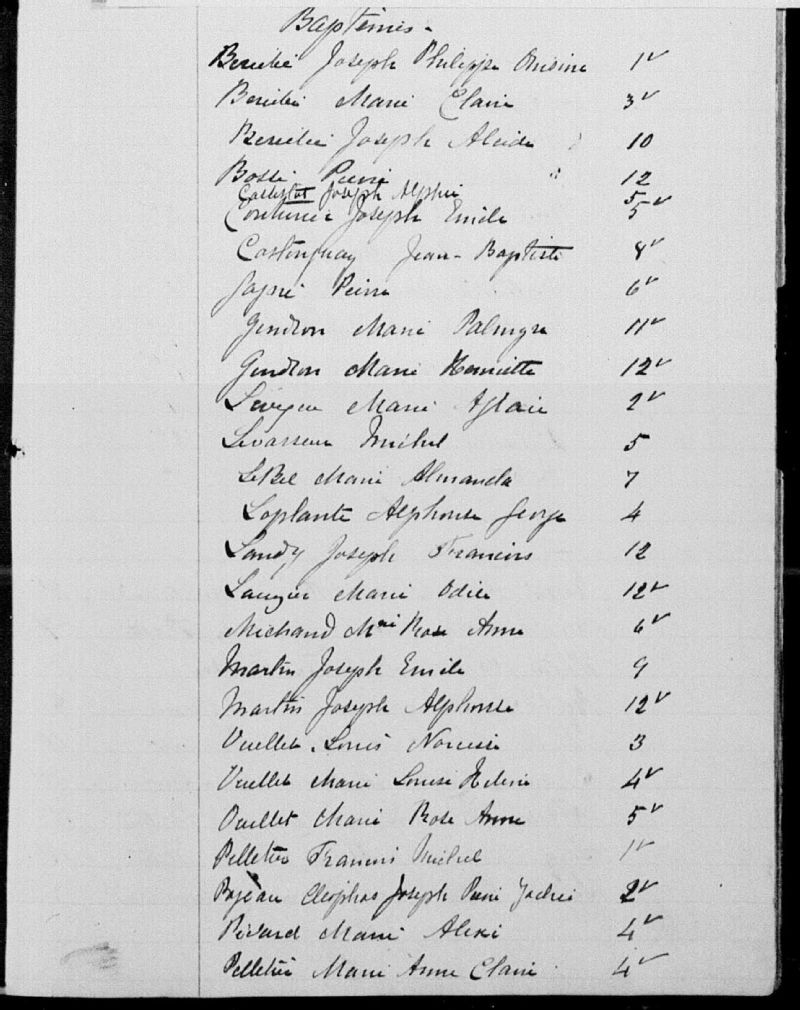 Baptêmes -
Joseph Philippe 1 v
Marie Claire 3 v
Joseph Alcide 10
Bossé Pierre 12
Joseph Alphée 5
Couturier Joseph Emile 5 v
Castonguay Jean-Baptiste 8 v
Pierre 6 v
Gendron Marie Palmyre 11 v
Gendron Marie Henriette 12 v
Levesque Marie Aglaie 2 v
Levasseur Michel 5
LeBel Marie Almanda 7
Laplante Alphonse George 4
Landry Joseph Francois 12
Marie Odile 12 v
Michaud Mrie Rose Anne 6 v
Martin Joseph Emile 9
Martin Joseph Alphonse 12 v
Ouellet Louis Narcisse 3
Ouellet Marie Louise Helene 4 v
Ouellet Marie Rose Anne 5 v
Pelletier Francois Michel 1 v
Cleophas Joseph 2 v
Marie Alexi 4 v
Pelletier Marie Anne Claire 4 v